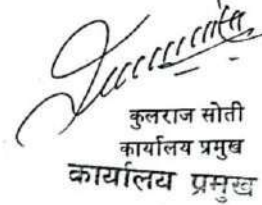 कुलराज सोती
कार्यालय प्रमुख
कार्यालय प्रमुख